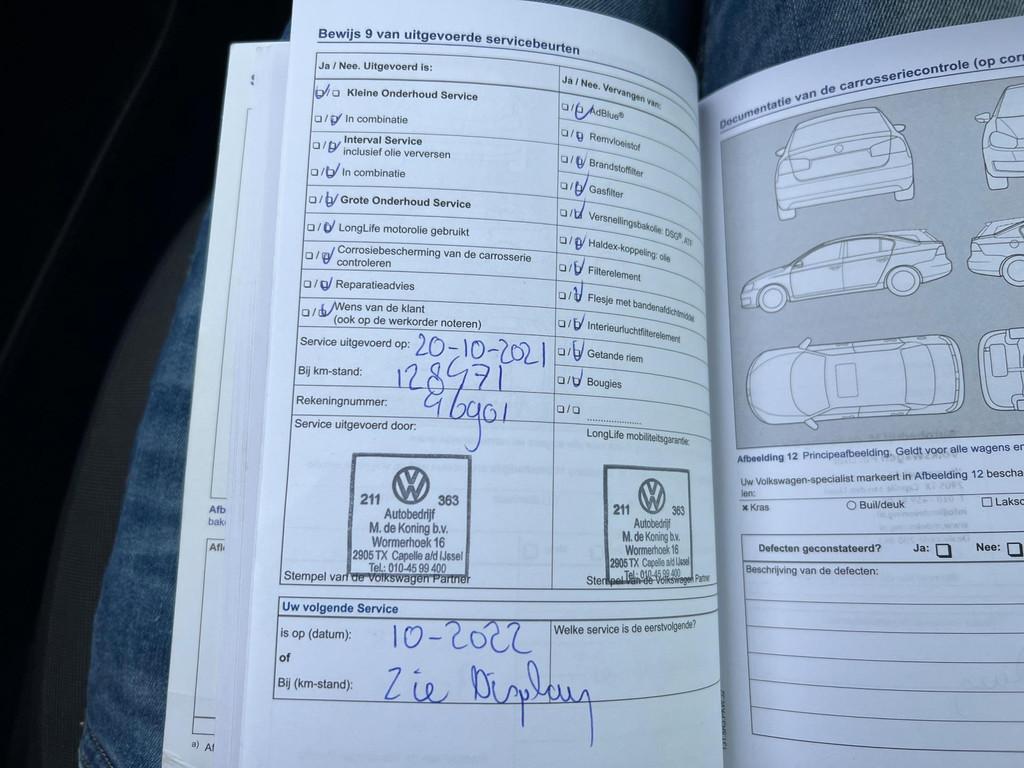 Bewijs 9 van uitgevoerde servicebeurten
Ja / Nee. Uitgevoerd is:
Kleine Onderhoud Service
In combinatie
Interval Service
inclusief olie verversen
In combinatie
Grote Onderhoud Service
LongLife motorolie gebruikt
Corrosiebescherming van de carrosserie
controleren
Reparatieadvies
Wens van de klant
(ook op de werkorder noteren)
Service uitgevoerd op: 20-10-2021
Bij km-stand: 128971
Rekeningnummer: 96901
Service uitgevoerd door:
211 363
Autobedrijf
M. de Koning b.v.
Wormerhoek 16
2905 TX Capelle a/d IJssel
Tel.: 010-45 99 400
Stempel van de Volkswagen Partner
Ja / Nee. Vervangen van:
AdBlue®
Remvloeistof
Brandstoffilter
Gasfilter
Versnellingsbakolie: DSG®, ATF
Haldex-koppeling: olie
Filterelement
Flesje met bandenafdichtmiddel
Interieurluchtfilterelement
Getande riem
Bougies
LongLife mobiliteitsgarantie:
211 363
Autobedrijf
M. de Koning b.v.
Wormerhoek 16
2905 TX Capelle a/d IJssel
Tel.: 010-45 99 400
Stempel van de Volkswagen Partner
Uw volgende Service
is op (datum): 10-2022
of
Bij (km-stand): Zie Display
Welke service is de eerstvolgende?
Documentatie van de carrosseriecontrole (op
Afbeelding 12 Principeafbeelding. Geldt voor alle wagens
Uw Volkswagen-specialist markeert in Afbeelding 12
len:
× Kras
Buil/deuk
Defecten geconstateerd? Ja: Nee:
Beschrijving van de defecten: